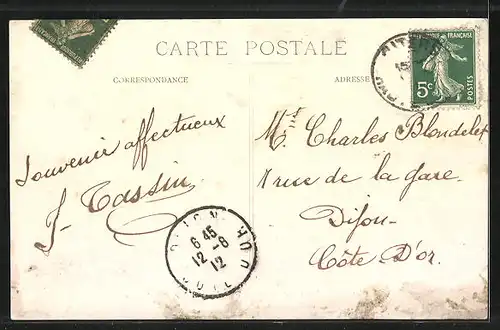 CARTE POSTALE
CORRESPONDANCE
ADRESSE
RÉPUBLIQUE FRANÇAISE
5c
POSTES
Souvenir affectueux
J- Tassin
Mr Charles Blondelet
1 rue de la gare.
Dijon-
Côte-D'or.
DIJON
6 45
12 - 8
12
COTE D'OR